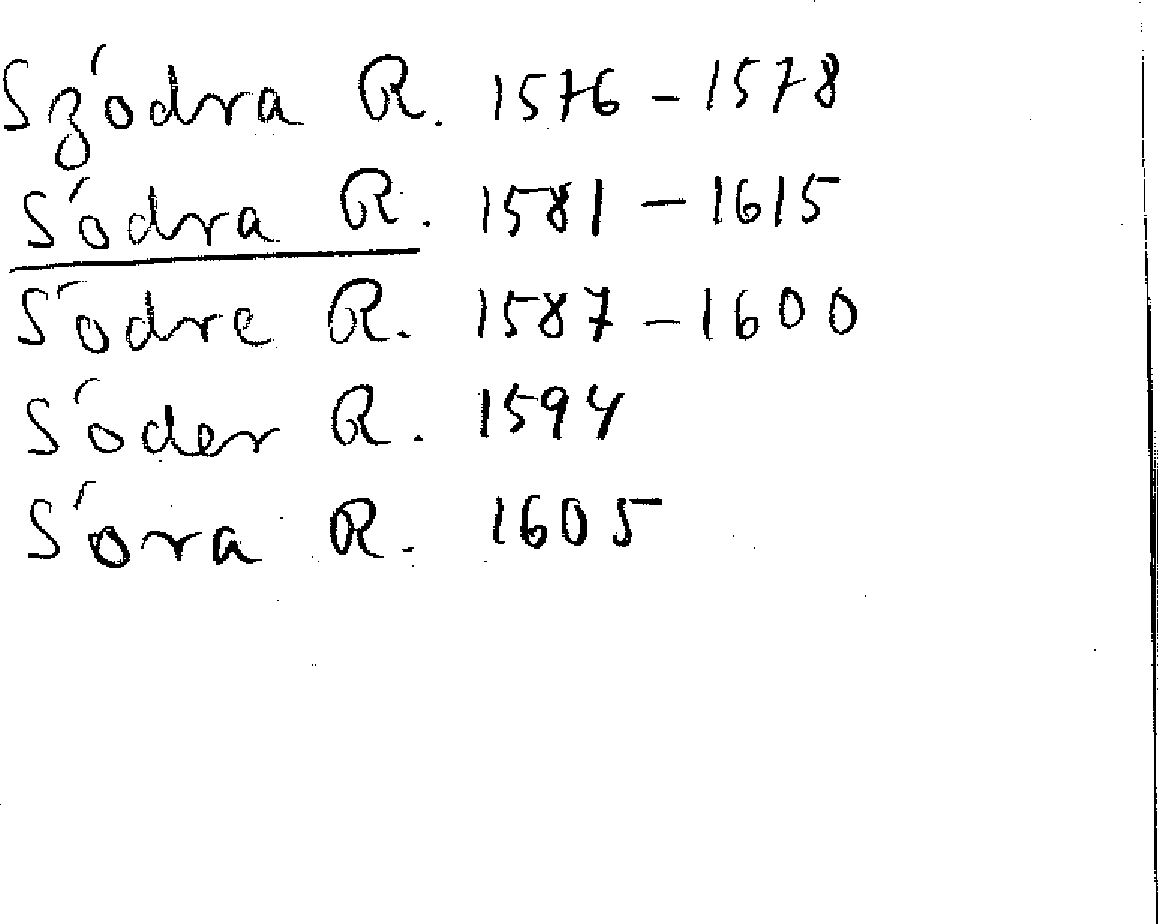 Szödra R. 1576-1578
Södra R. 1581-1615
Södre R. 1587-1600
Söder R. 1594
Söra R. 1605